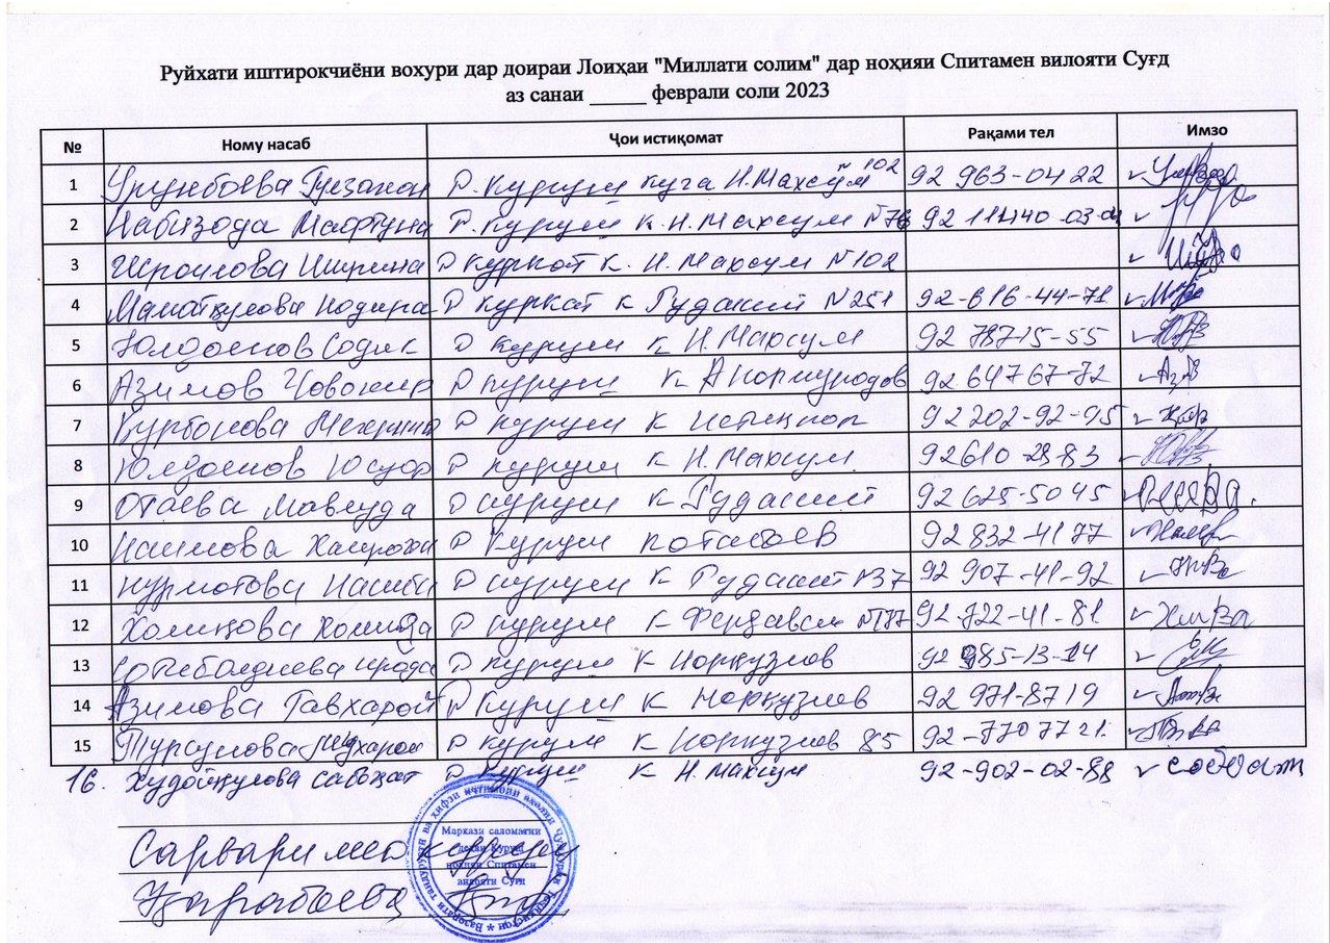 Руйхати иштирокчиёни вохури дар доираи Лоиҳаи "Миллати солим" дар ноҳияи Спитамен вилояти Суғд
аз санаи ______ феврали соли 2023
№ Ному насаб Ҷои истиқомат Рақами тел Имзо
1 Урунбоева Гулзахон Д. Куруш куча Н. Махсум 102 92 963-04 22
2 Набизода Мафтуна Д. Куруш к. Н. Махсум №76 92
3 Исроилова Ширина Д куркат к. Н. Махсум №102
4 Маматкулова Нодира Д куркат к Рудакий №251 92-616-44-71
5 Юлдошов Содик Д куруш к Н. Махсум 92 78715-55
6 Азимов Ҷовохир Д куруш к А нормуродов 92 64767-72
7 Курбонова Мехрина Д куруш к истиклол 92 202-92-95
8 Юлдошов Юсуф Д куруш к Н. Махсум 92610-2983
9 Отаева Мавлуда Д куруш к Рудакий 92 625-5045
10 Наимова Д Куруш к отабоев 92 832-4177
11 нурматова Насиба Д куруш к Рудакий №37 92 907-41-92
12 Холикова Холида Д куруш к Фирдавси №177 92-722-41-81
13 ирода Д куруш к Норкузиев 92 985-13-14
14 Азимова Гавхарой Д Куруш к Норкузиев 92 971-8719
15 Турсунова Д куруш к Норкузиев 85 92-7707721
16. Худойкулова сабохат Д куруш к Н. Махсум 92-902-02-88 сабохат
Сарвари мск куруш
Маркази саломатии
деҳаи Куруш
ноҳияи Спитамен
вилояти Суғд
Қарабаева